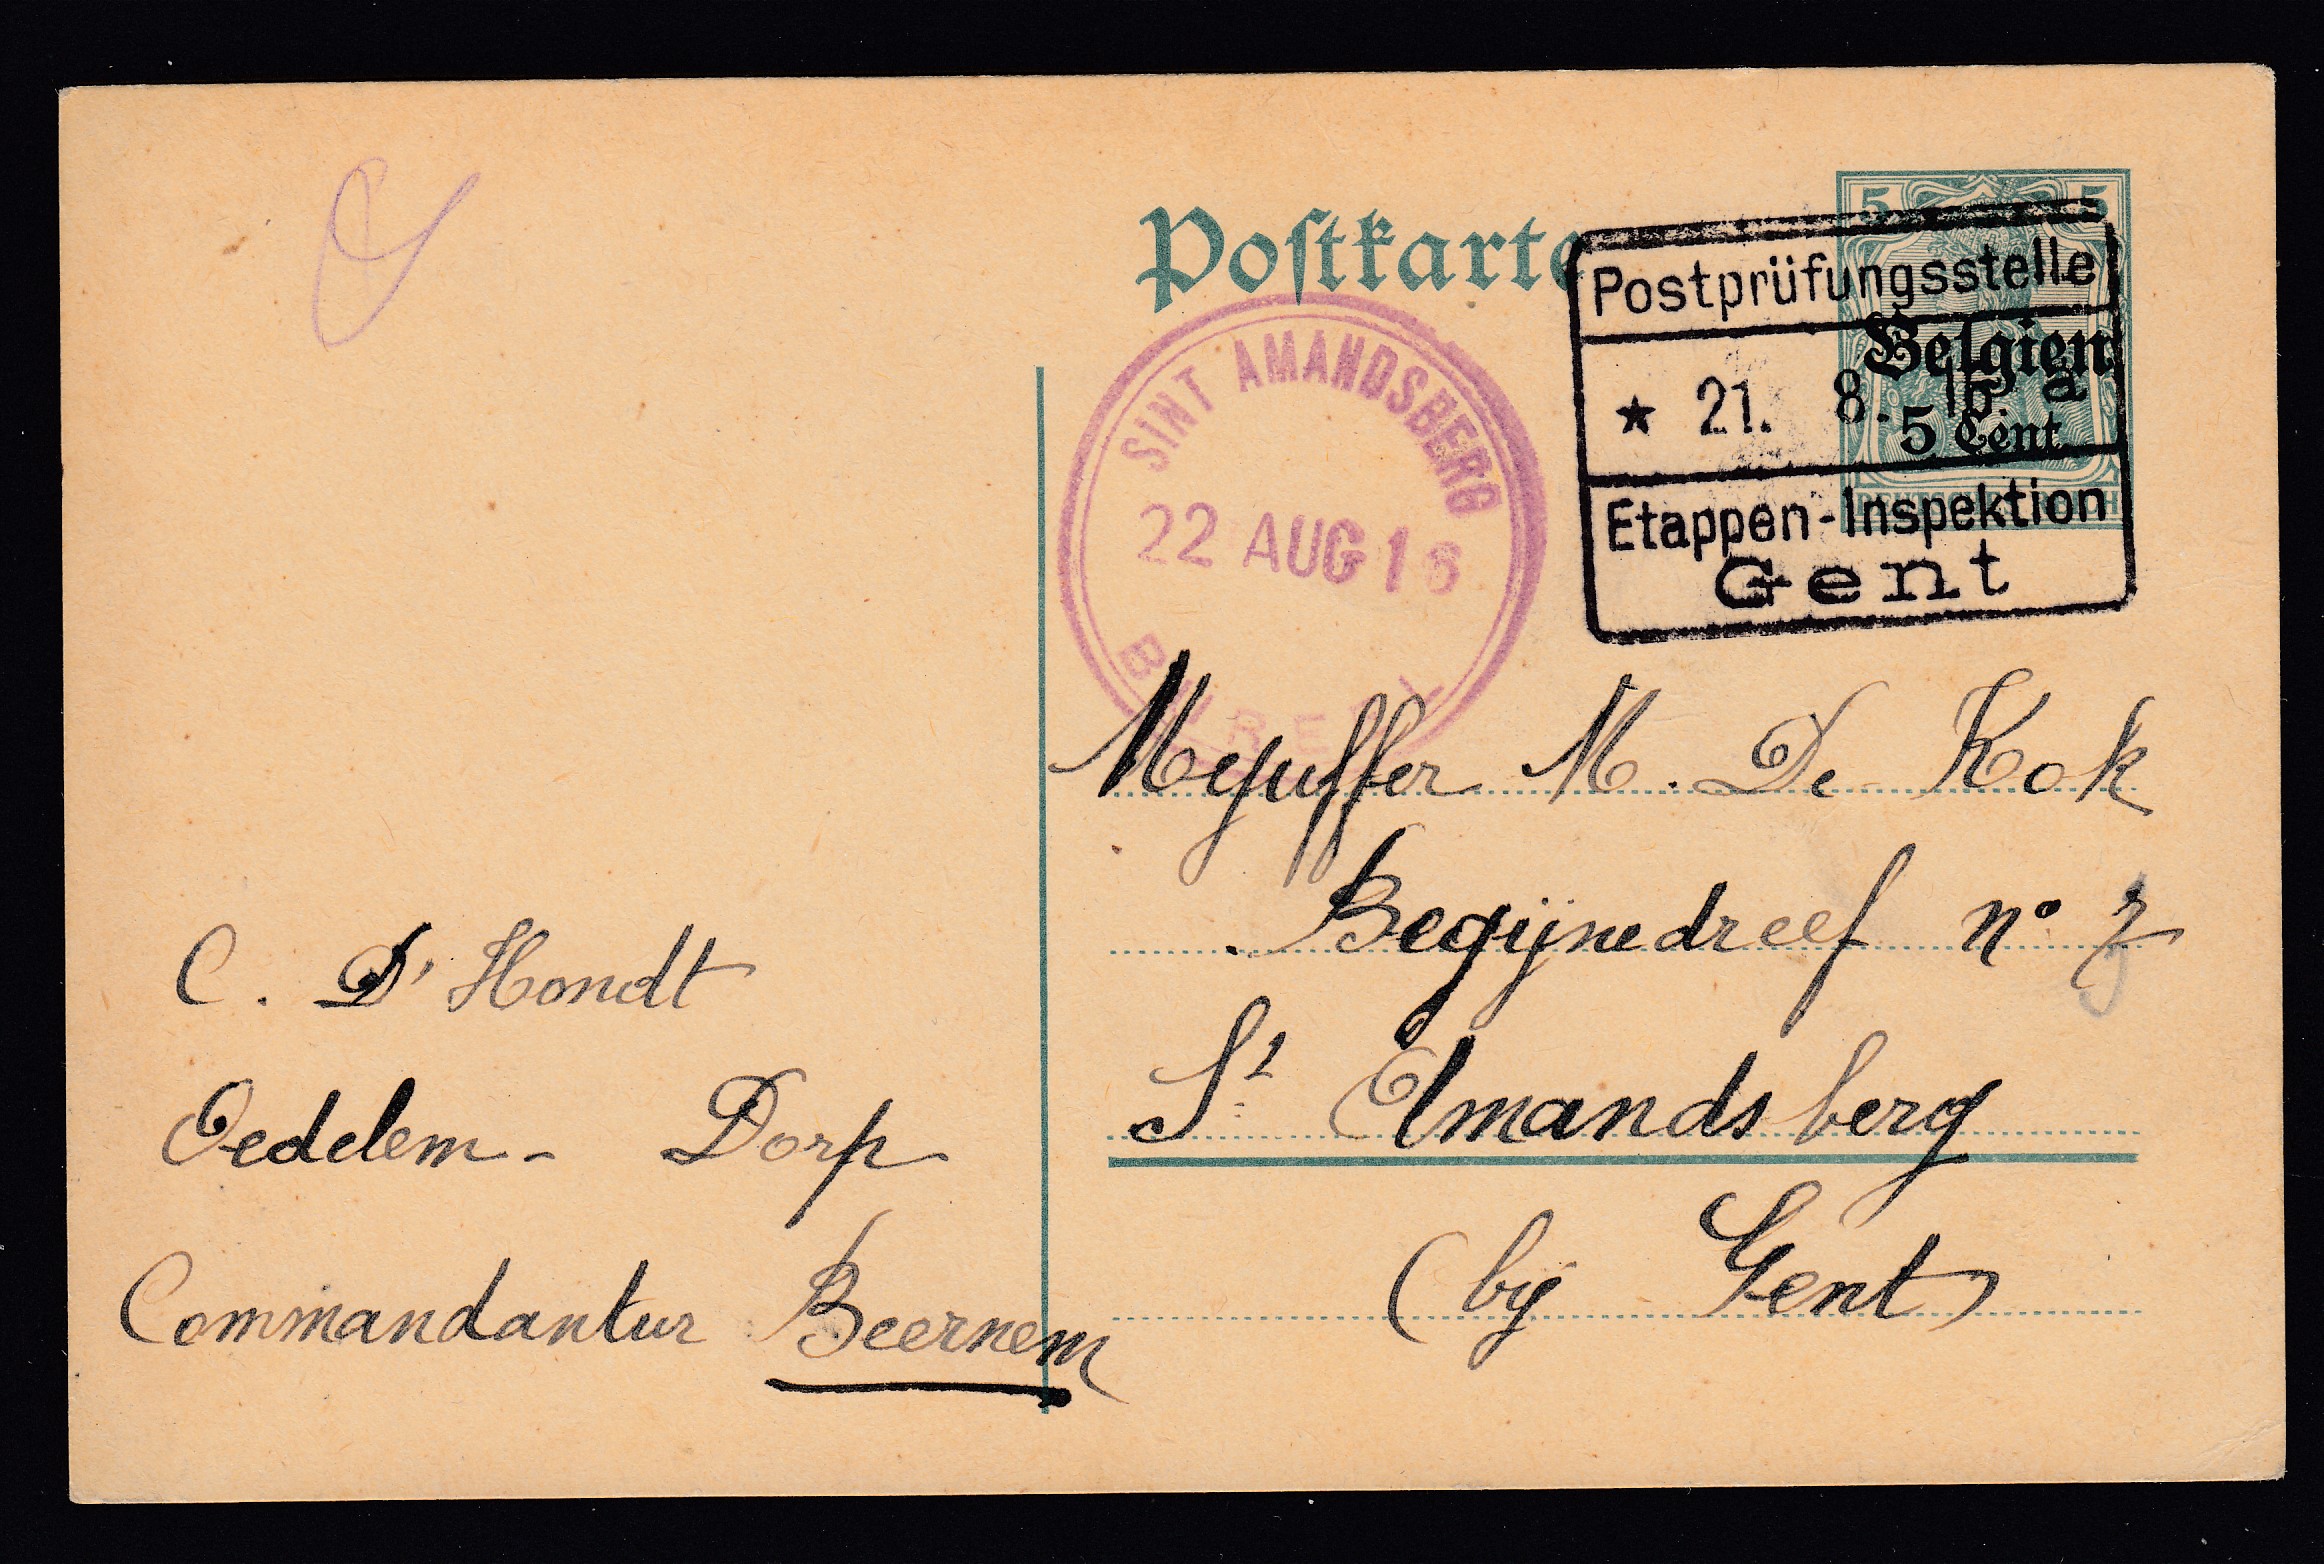 Postkarte
5 5
Postprüfungsstelle
Belgien
★ 21. 8. 16. a
5 Cent.
Etappen-Inspektion
Gent
SINT AMANDSBERG
22 AUG 16
Mejuffer M. De Kok
Begijnedreef nº
St Amandsberg
(bij Gent)
C. D'Hondt
Oedelem - Dorp
Commandantur Beernem